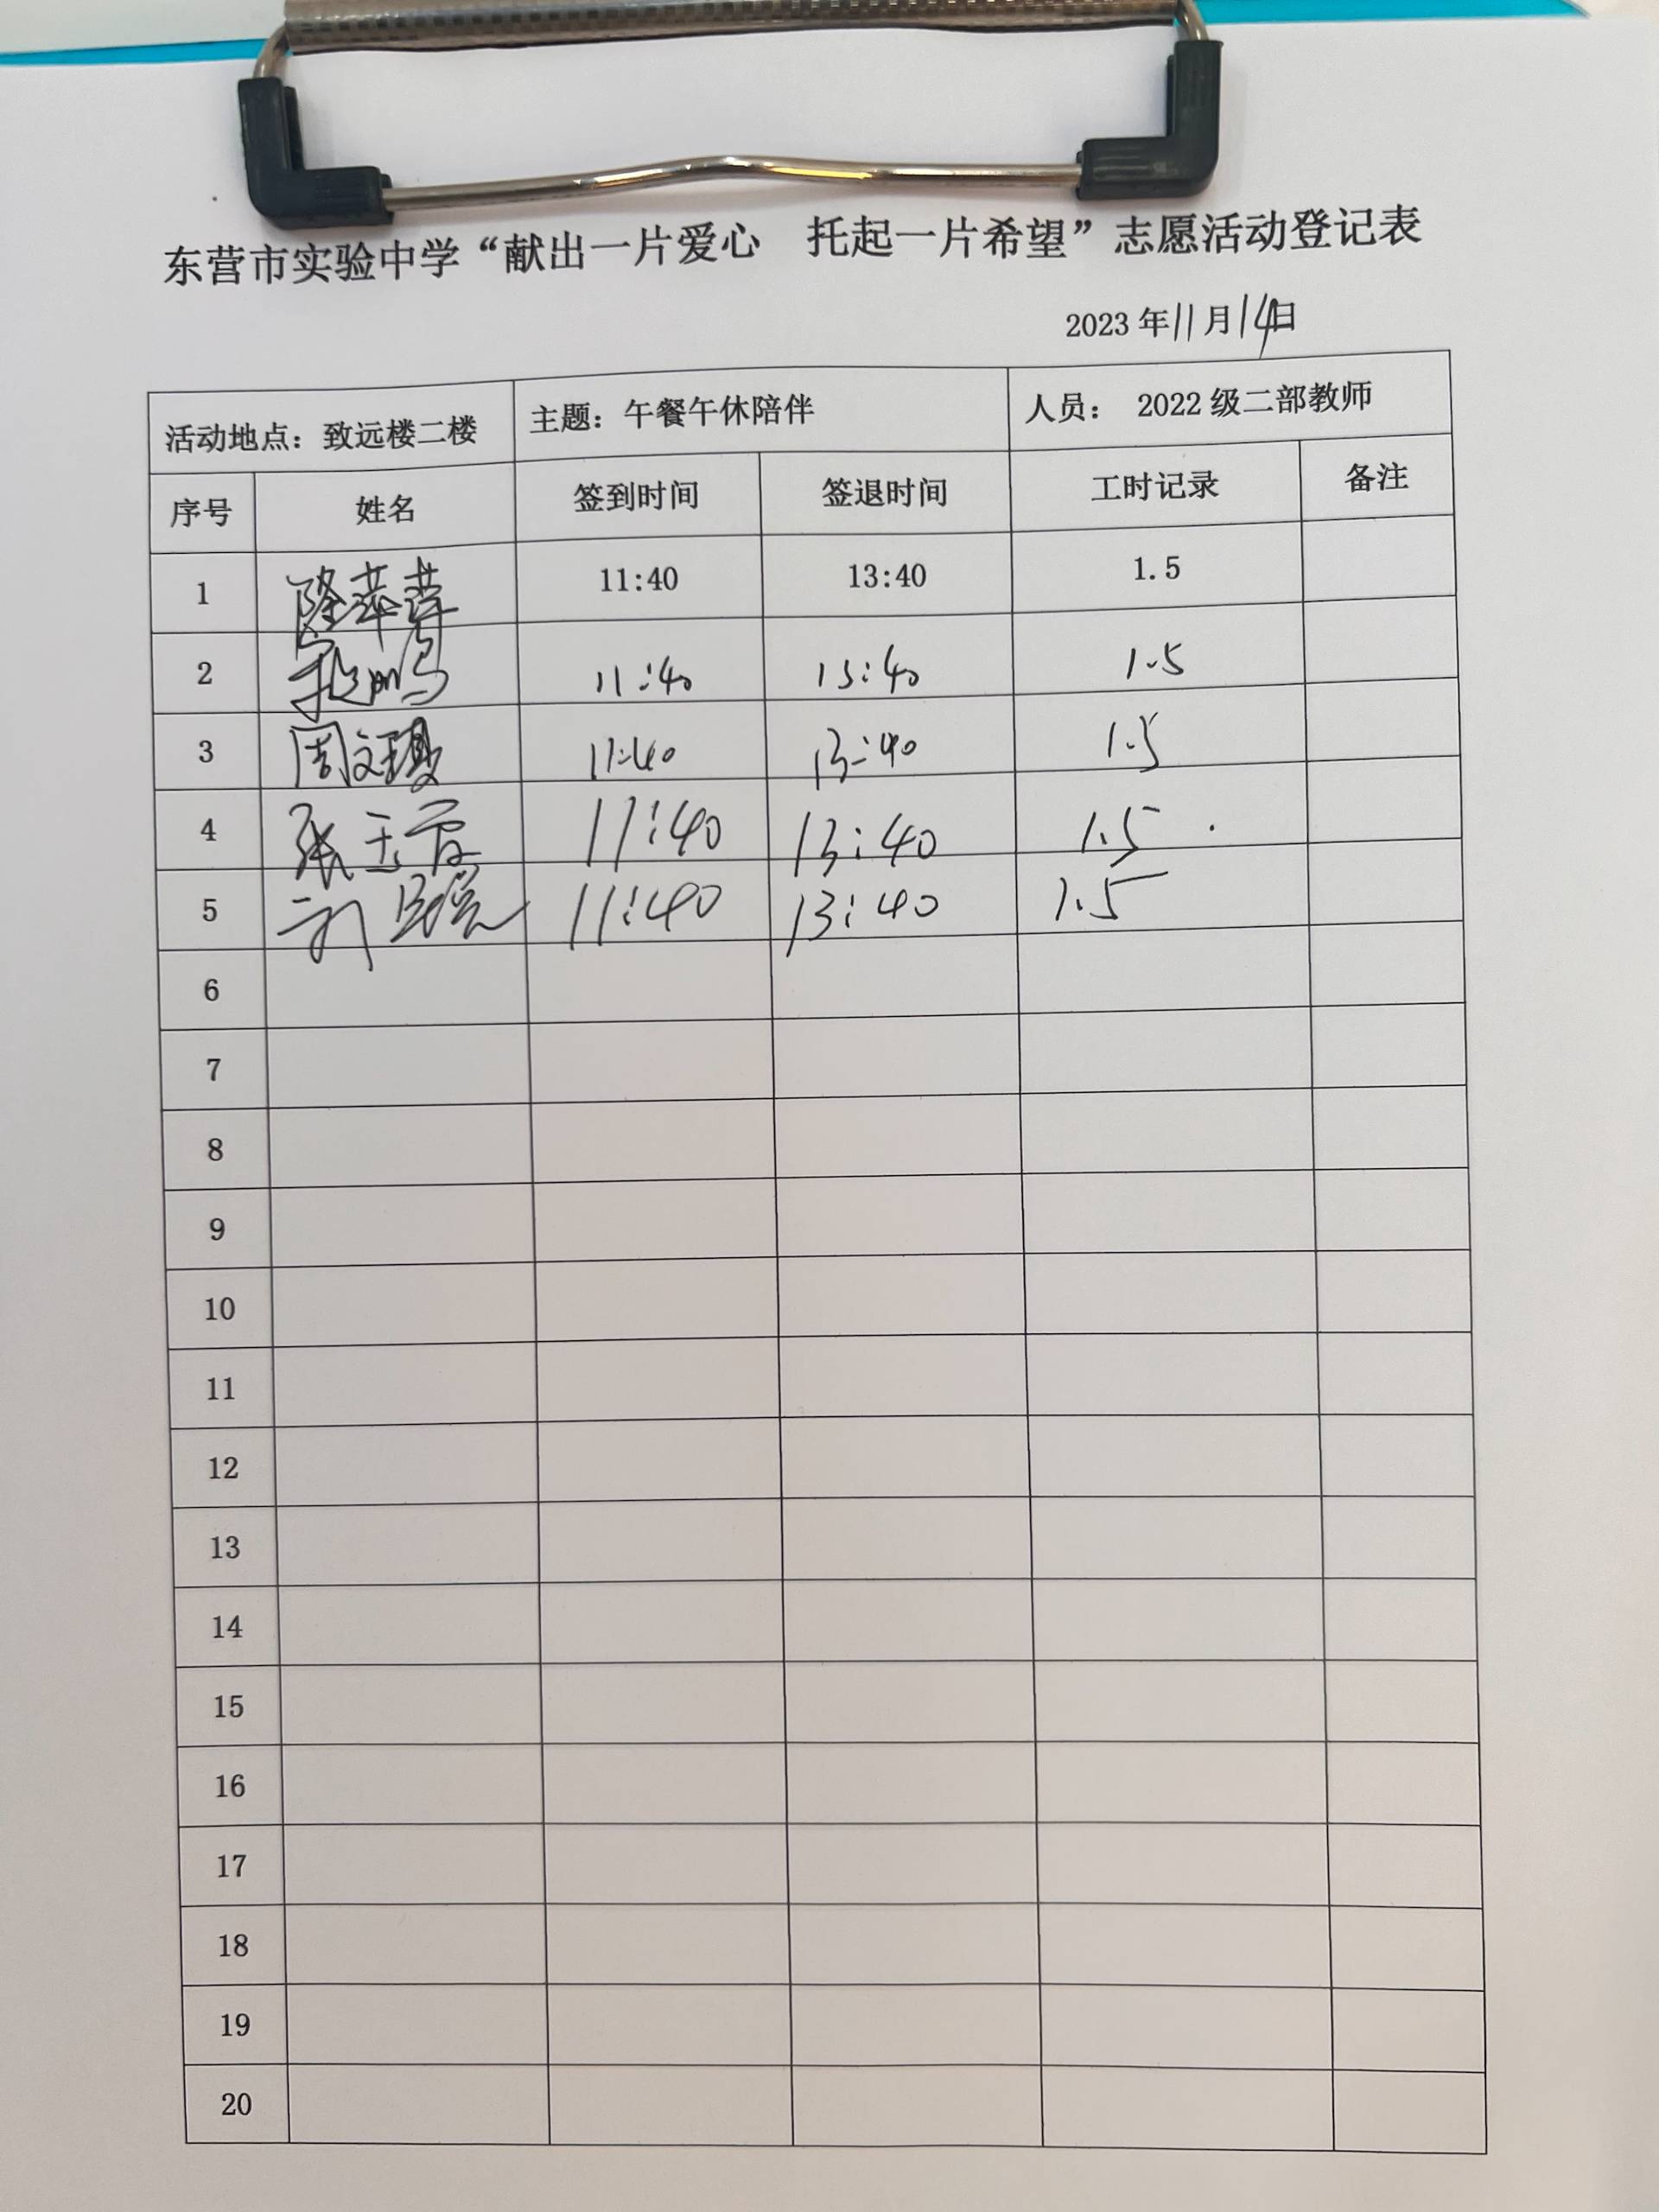 东营市实验中学“献出一片爱心 托起一片希望”志愿活动登记表
2023年11月14日
活动地点：致远楼二楼 主题：午餐午休陪伴 人员： 2022级二部教师
序号 姓名 签到时间 签退时间 工时记录 备注
1 隆萍萍 11:40 13:40 1.5
2 11:40 13:40 1.5
3 周文 11:40 13:40 1.5
4 张玉霞 11:40 13:40 1.5
5 刘 11:40 13:40 1.5
6
7
8
9
10
11
12
13
14
15
16
17
18
19
20